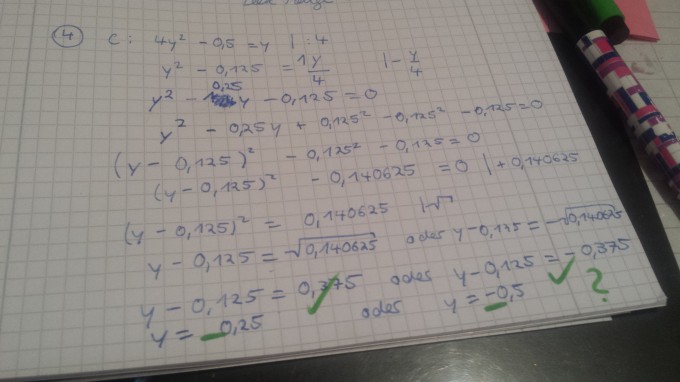 ④ c: 4y² - 0,5 = y | : 4
y² - 0,125 = 1y/4 | - y/4
y² - 0,25 y - 0,125 = 0
y² - 0,25y + 0,125² - 0,125² - 0,125 = 0
(y - 0,125)² - 0,125² - 0,125 = 0
(y - 0,125)² - 0,140625 = 0 | + 0,140625
(y - 0,125)² = 0,140625 | √
y - 0,125 = √0,140625 oder y - 0,125 = -√0,140625
y - 0,125 = 0,375 oder y - 0,125 = -0,375
y = -0,25 oder y = -0,5 ?